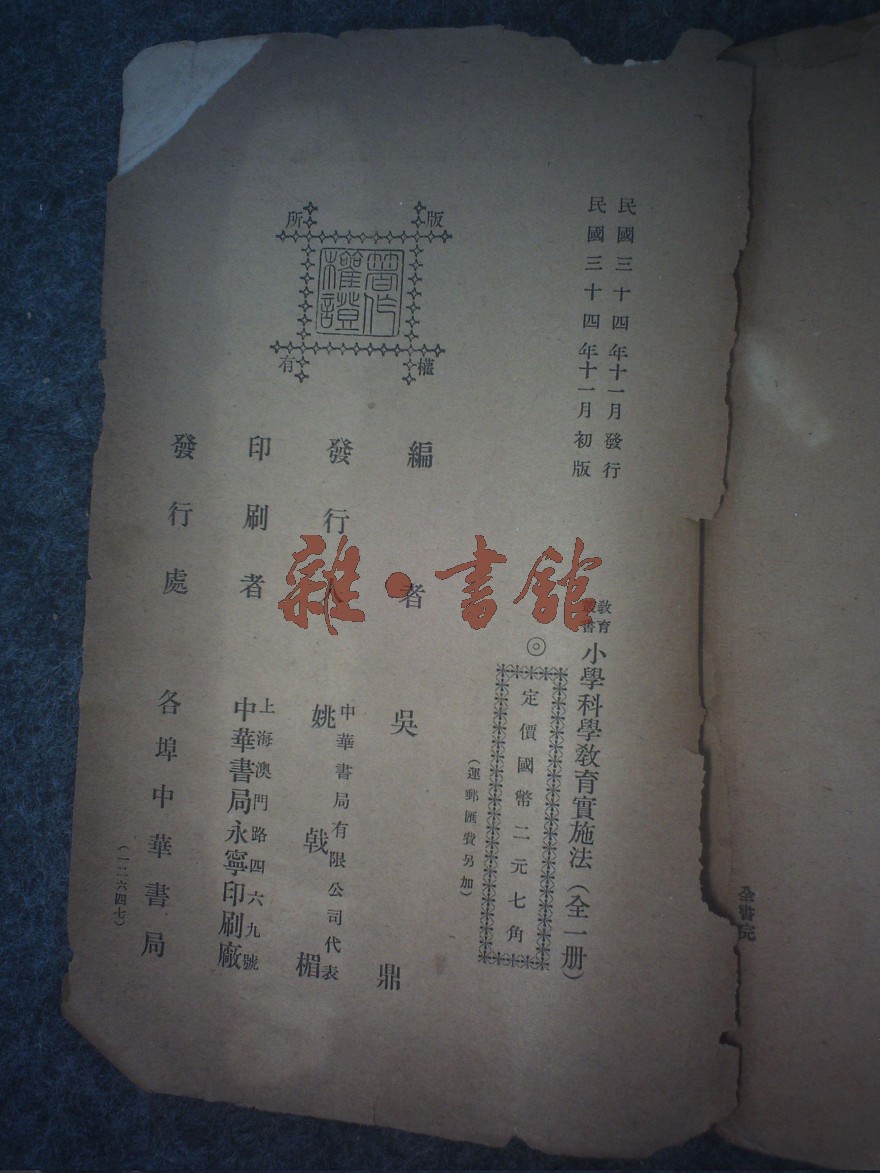 民國三十四年十一月發行
民國三十四年十一月初版
教育
小學科學教育實施法（全一册）
◎
定價國幣二元七角
（運郵匯費另加）
版權所有
著作權證
編者 吳鼎
發行人 中華書局有限公司代表
姚戟楣
印刷者 上海澳門路四六九號
中華書局永寧印刷廠
發行處 各埠中華書局
（一二六四七）
全書完
雜·書館